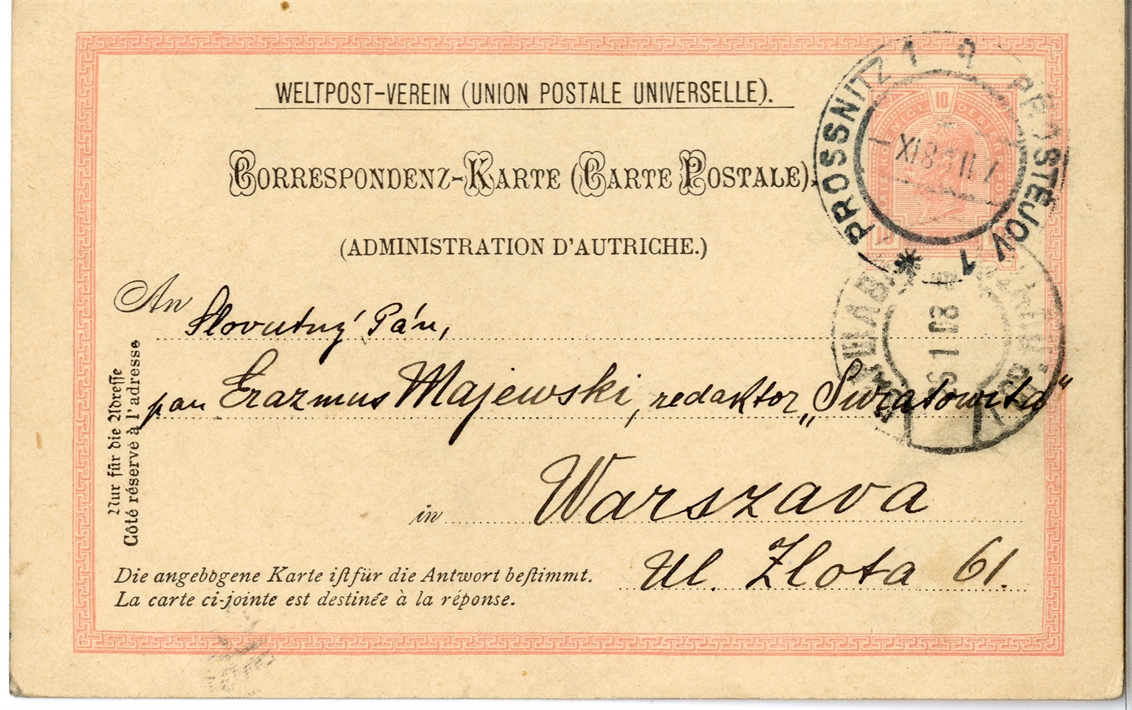 WELTPOST-VEREIN (UNION POSTALE UNIVERSELLE).
CORRESPONDENZ-KARTE (CARTE POSTALE).
(ADMINISTRATION D'AUTRICHE.)
PROSSNITZ 1 PROSTĚJOV 1
10
An Slovutný Pán,
pan Erazmus Majewski, redaktor „Światowita"
in Warszava
Ul. Zlota 61.
Nur für die Adresse
Côté réservé à l'adresse
Die angebogene Karte ist für die Antwort bestimmt.
La carte ci-jointe est destinée à la réponse.